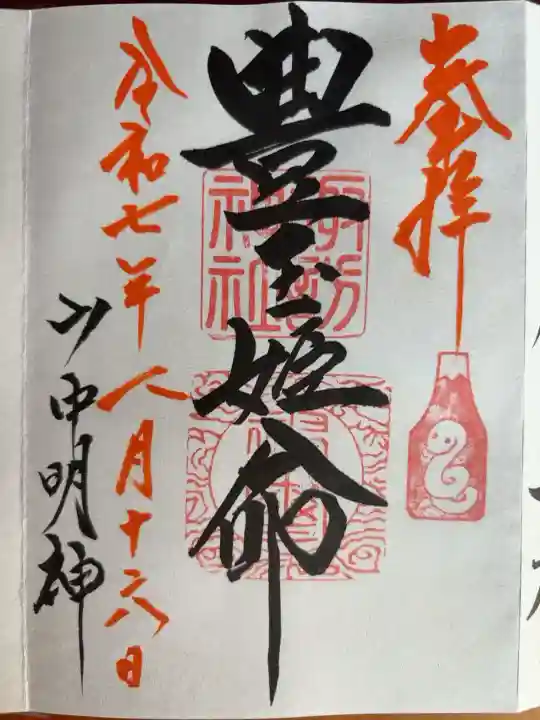 奉拝
豊玉姫命
諏訪
神社
令和七年八月十六日
中明神